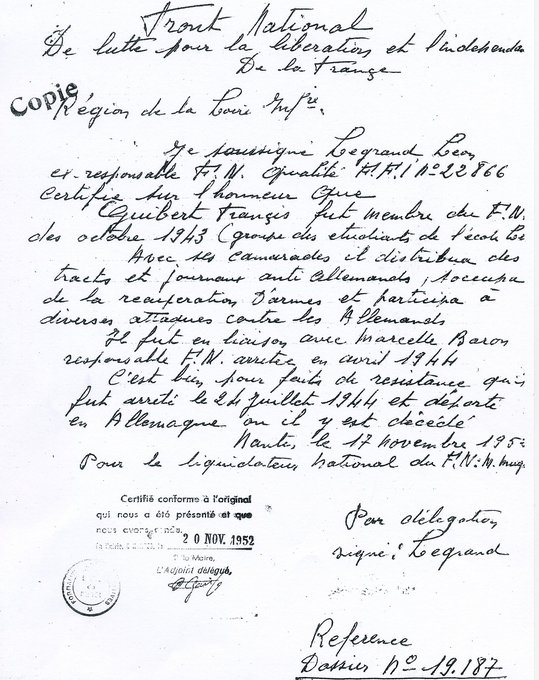 Front National
De lutte pour la libération et l'indépendan
De la France
Copie
Région de la Loire Infre.
Je soussigné Legrand Leon
ex-responsable F.N. qualité F.F.I No 22866
certifie sur l'honneur que
Guibert Françis fut membre du F.N.
des octobre 1943 (groupe des etudiants de l'école
Avec ses camarades il distribua des
tracts et journaux anti Allemands, s'occupa
de la recuperation D'armes et participa à
diverses attaques contre les Allemands
Il fut en liaison avec Marcelle Baron
responsable F.N. arretee en avril 1944
C'est bien pour faits de resistance qu'i
fut arrêté le 24 Juillet 1944 et déporté
en Allemagne ou il y est décédé
Nantes le 17 novembre 195
Pour le liquidateur National du F.N. M.
Certifié conforme à l'original
qui nous a été présenté et que
nous avons rendu.
20 NOV. 1952
Le Maire,
L'Adjoint délégué,
Par délégation
signé : Legrand
Reference
Dossier No 19.187